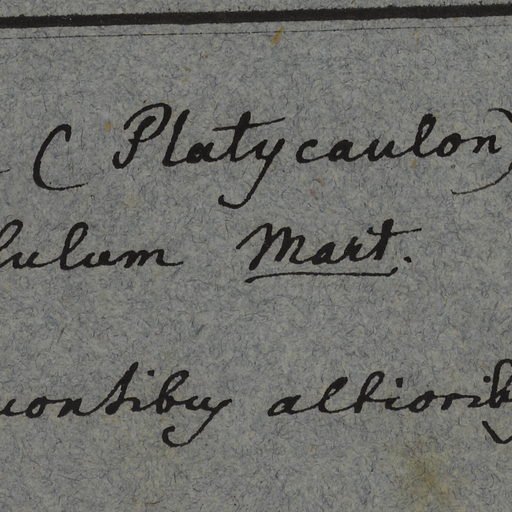 (Platycaulon)
lulum Mart.
montibus altiorib